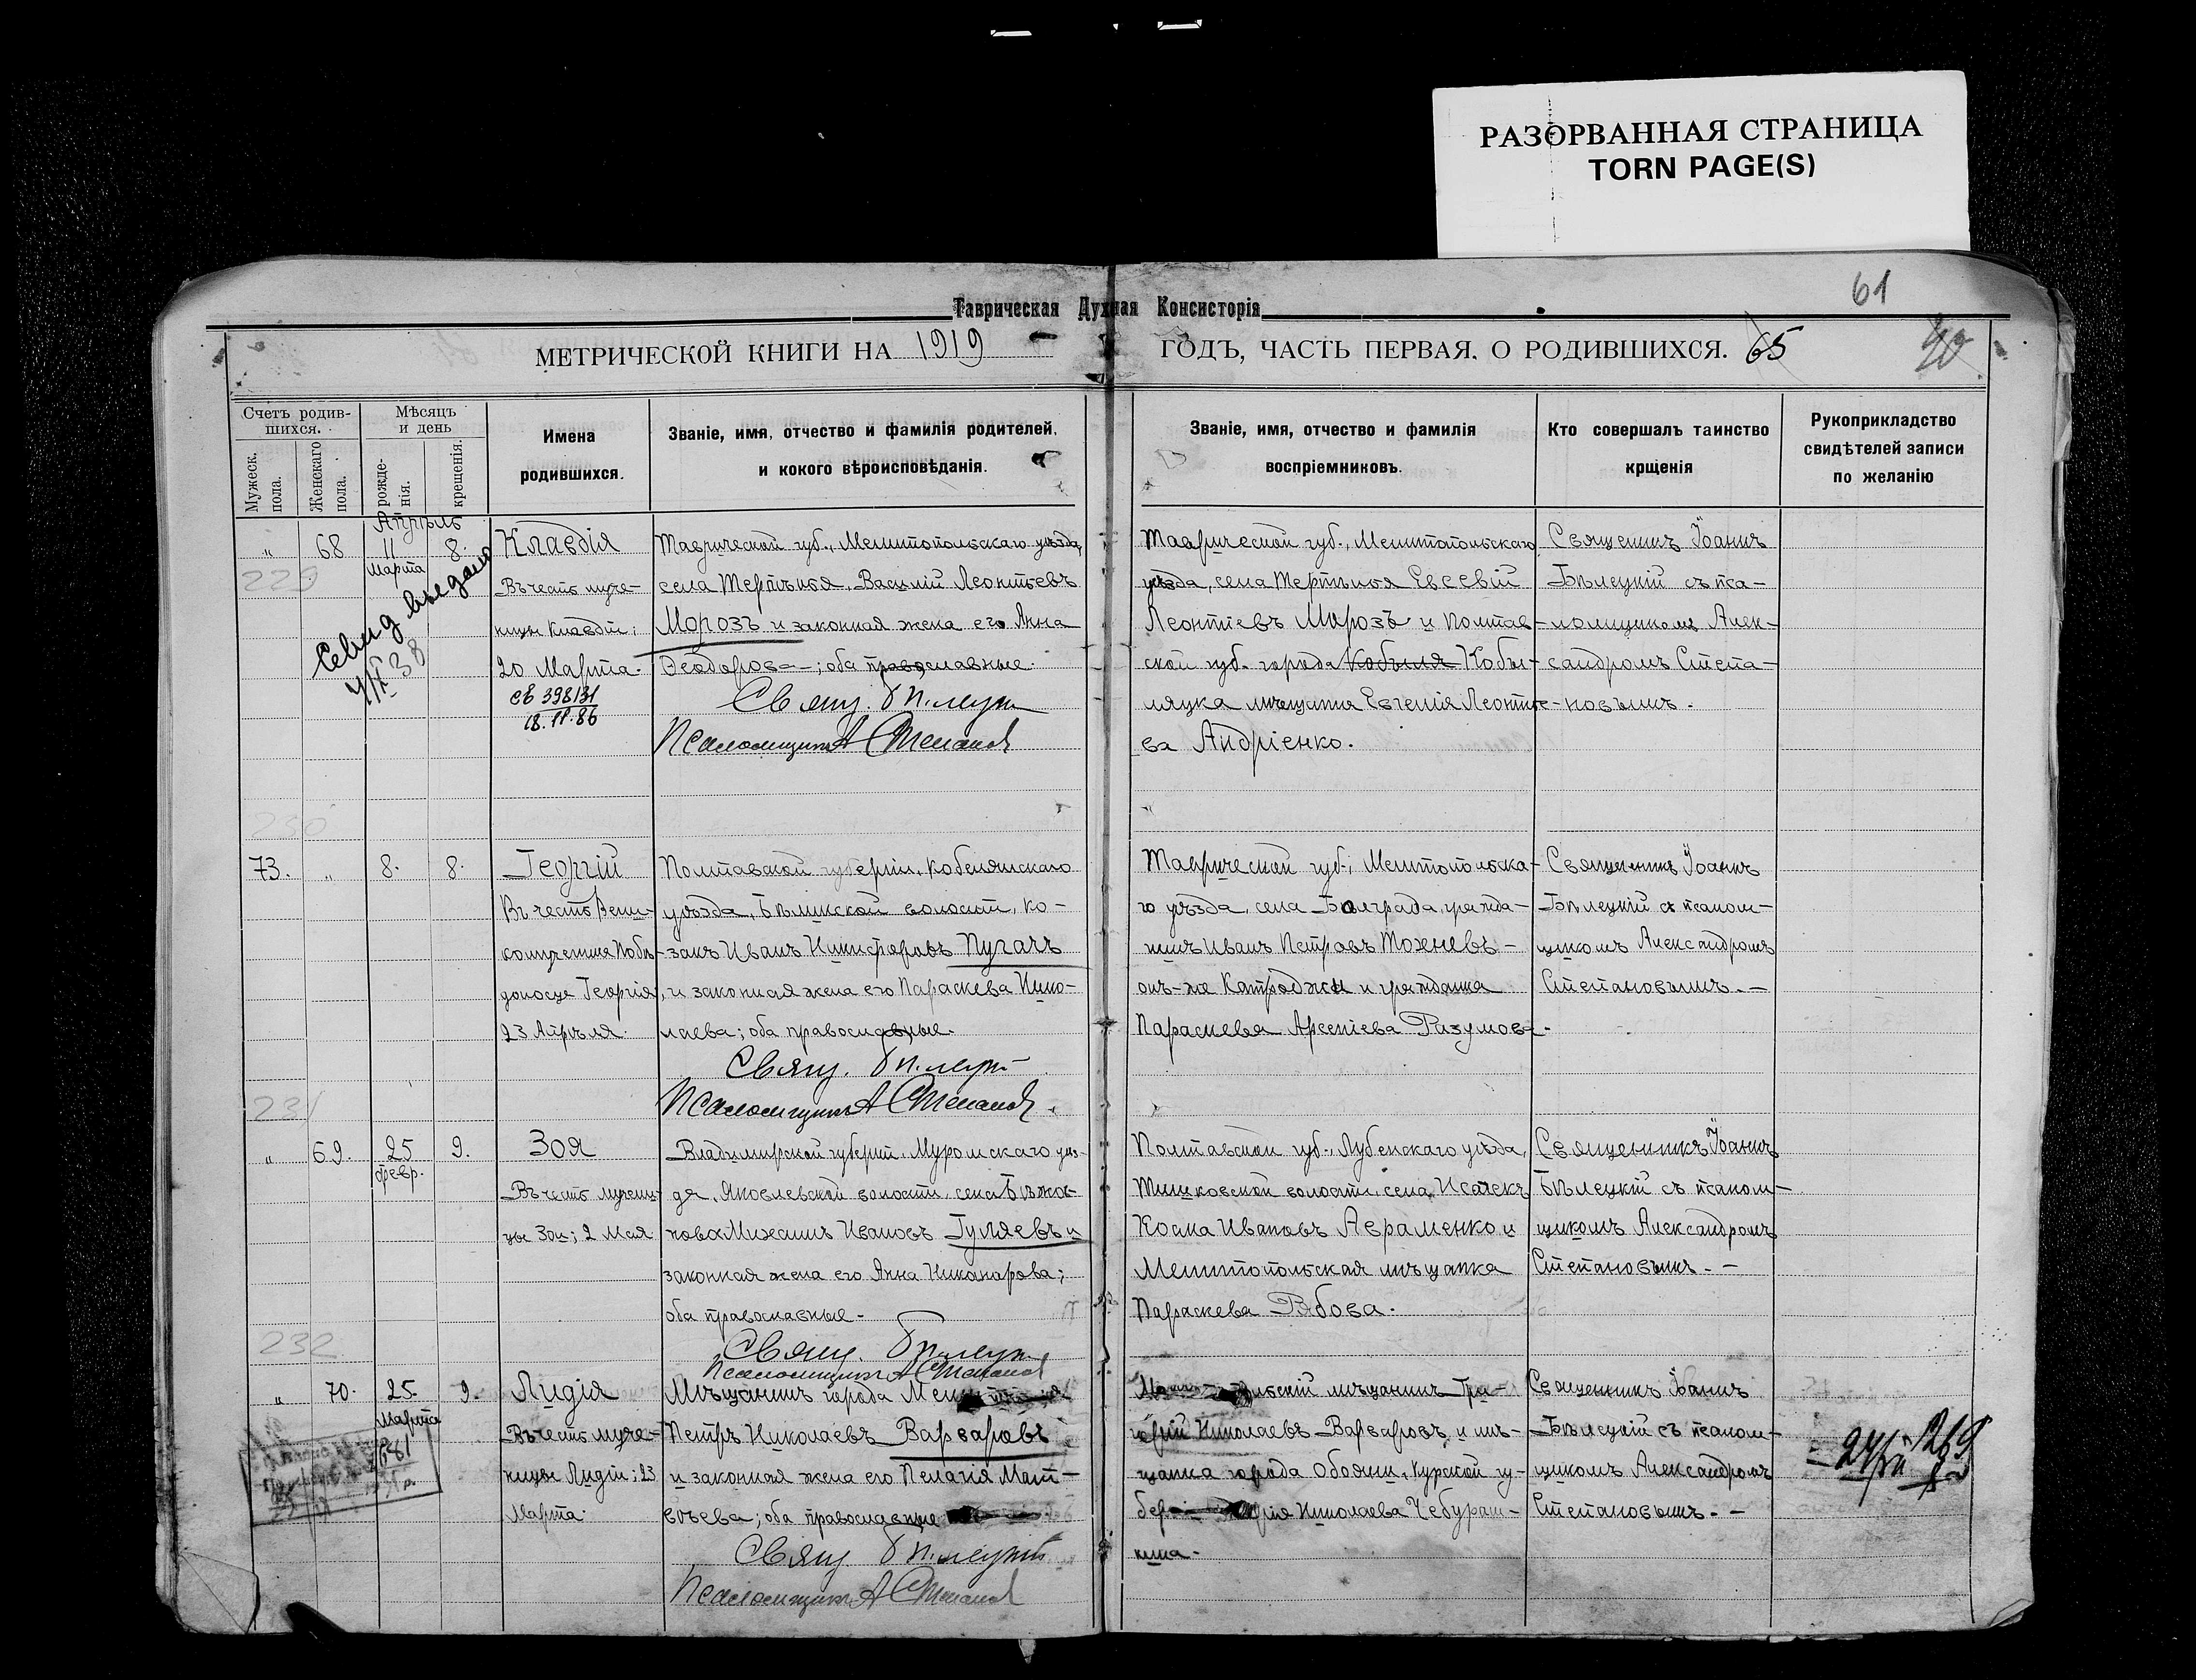 РАЗОРВАННАЯ СТРАНИЦА
TORN PAGE(S)
61
Таврическая Духная Консисторія
МЕТРИЧЕСКОЙ КНИГИ НА 1919
ГОДЪ, ЧАСТЬ ПЕРВАЯ, О РОДИВШИХСЯ. 65
Счетъ родив-
шихся.
Мужеск.
пола.
Женскаго
пола.
Мѣсяцъ
и день
рожде-
нія.
крещенія.
Имена
родившихся.
Званіе, имя, отчество и фамилія родителей,
и кокого вѣроисповѣданія.
Званіе, имя, отчество и фамилія
воспріемниковъ.
Кто совершалъ таинство
крщенія
Рукоприкладство
свидѣтелей записи
по желанію
Апрѣль
„ 68 11 8.
Марта
229
Клавдія
Въ честь муче-
ницы Клавдіи;
20 Марта.
Св 398131
18.11.86
Таврической губ., Мелитопольскаго уѣзда,
села Терпѣнія, Василій Леонтьевъ
Морозъ и законная жена его Анна
Ѳеодоров--; оба православные.
Свящ. Бѣлецкі
Псаломщикъ А Степановъ
Таврической губ., Мелитопольскаго
уѣзда, села Терпѣнія Евсевій
Леонтіевъ Морозъ и Полтав-
ской губ. города Кобыля Кобы-
ляцка мѣщанка Евгенія Леонтіе-
ва Андріенко.
Священникъ Іоаннъ
Бѣлецкій съ пса-
ломщикомъ Алек-
сандромъ Степа-
новымъ.
230
73. „ 8. 8.
Георгій
Въ честь Вели-
комученика Побѣ-
доносца Георгія,
23 Апрѣля.
Полтавской губерніи, Кобелякскаго
уѣзда, Бѣликской волости, ко-
закъ Иванъ Никифоровъ Пугачъ
и законная жена его Параскева Нико-
лаева; оба православные.
Свящ. Бѣлецкі
Псаломщикъ А Степановъ.
Таврической губ., Мелитопольска-
го уѣзда, села Болграда, гражда-
нинъ Иванъ Петровъ Тожневъ-
онъ-же Катроджи и гражданка
Параскева Арсеніева Разумова.
Священникъ Іоаннъ
Бѣлецкій съ псалом-
щикомъ Александромъ
Степановымъ. -
231
„ 69. 25 9.
февр.
Зоя
Въ честь мучени-
цы Зои; 2 Мая
Владимирской губерніи, Муромскаго уѣз-
да, Яковлевской волости, села
Михаилъ Ивановъ Гуляевъ и
законная жена его Анна Никанорова;
оба православные.
Свящ. Бѣлецкі
Псаломщикъ А Степановъ
Полтавской губ., Лубенскаго уѣзда,
Тишковской волости, села Исачекъ
Косма Ивановъ Авраменко и
Мелитопольская мѣщанка
Параскева Рябова.
Священникъ Іоаннъ
Бѣлецкій съ псалом-
щикомъ Александромъ
Степановымъ. -
232
„ 70. 25. 9.
Марта
Лидія
Въ честь муче-
ницы Лидіи; 23
Марта.
Мѣщанинъ города
Петръ Николаевъ Варваровъ
и законная жена его Пелагія Мат-
вѣева; оба православные
Свящ. Бѣлецкій
Псаломщикъ А Степановъ
мѣщанинъ Гри-
горій Николаевъ Варваровъ и мѣ-
щанка города Обояни, Курской гу-
бер Николаева Чебураш-
кина.
Священникъ Іоаннъ
Бѣлецкій съ псалом-
щикомъ Александромъ
Степановымъ. -